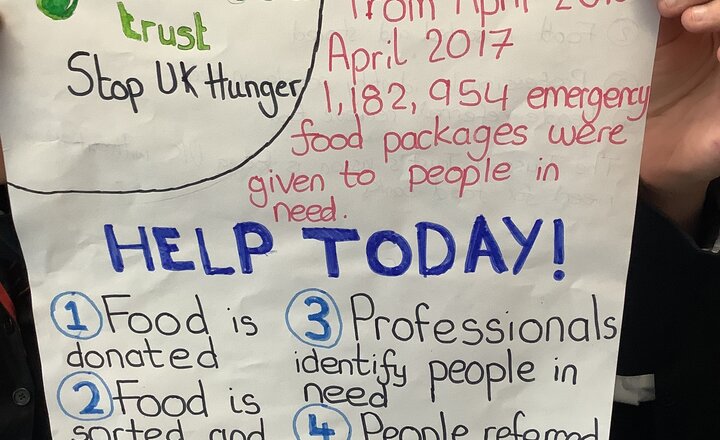 trust
Stop UK Hunger
from April 20
April 2017
1,182,954 emergency
food packages were
given to people in
need.
HELP TODAY!
1 Food is
donated
2 Food is
sorted and
3 Professionals
identify people in
need
4 People referred